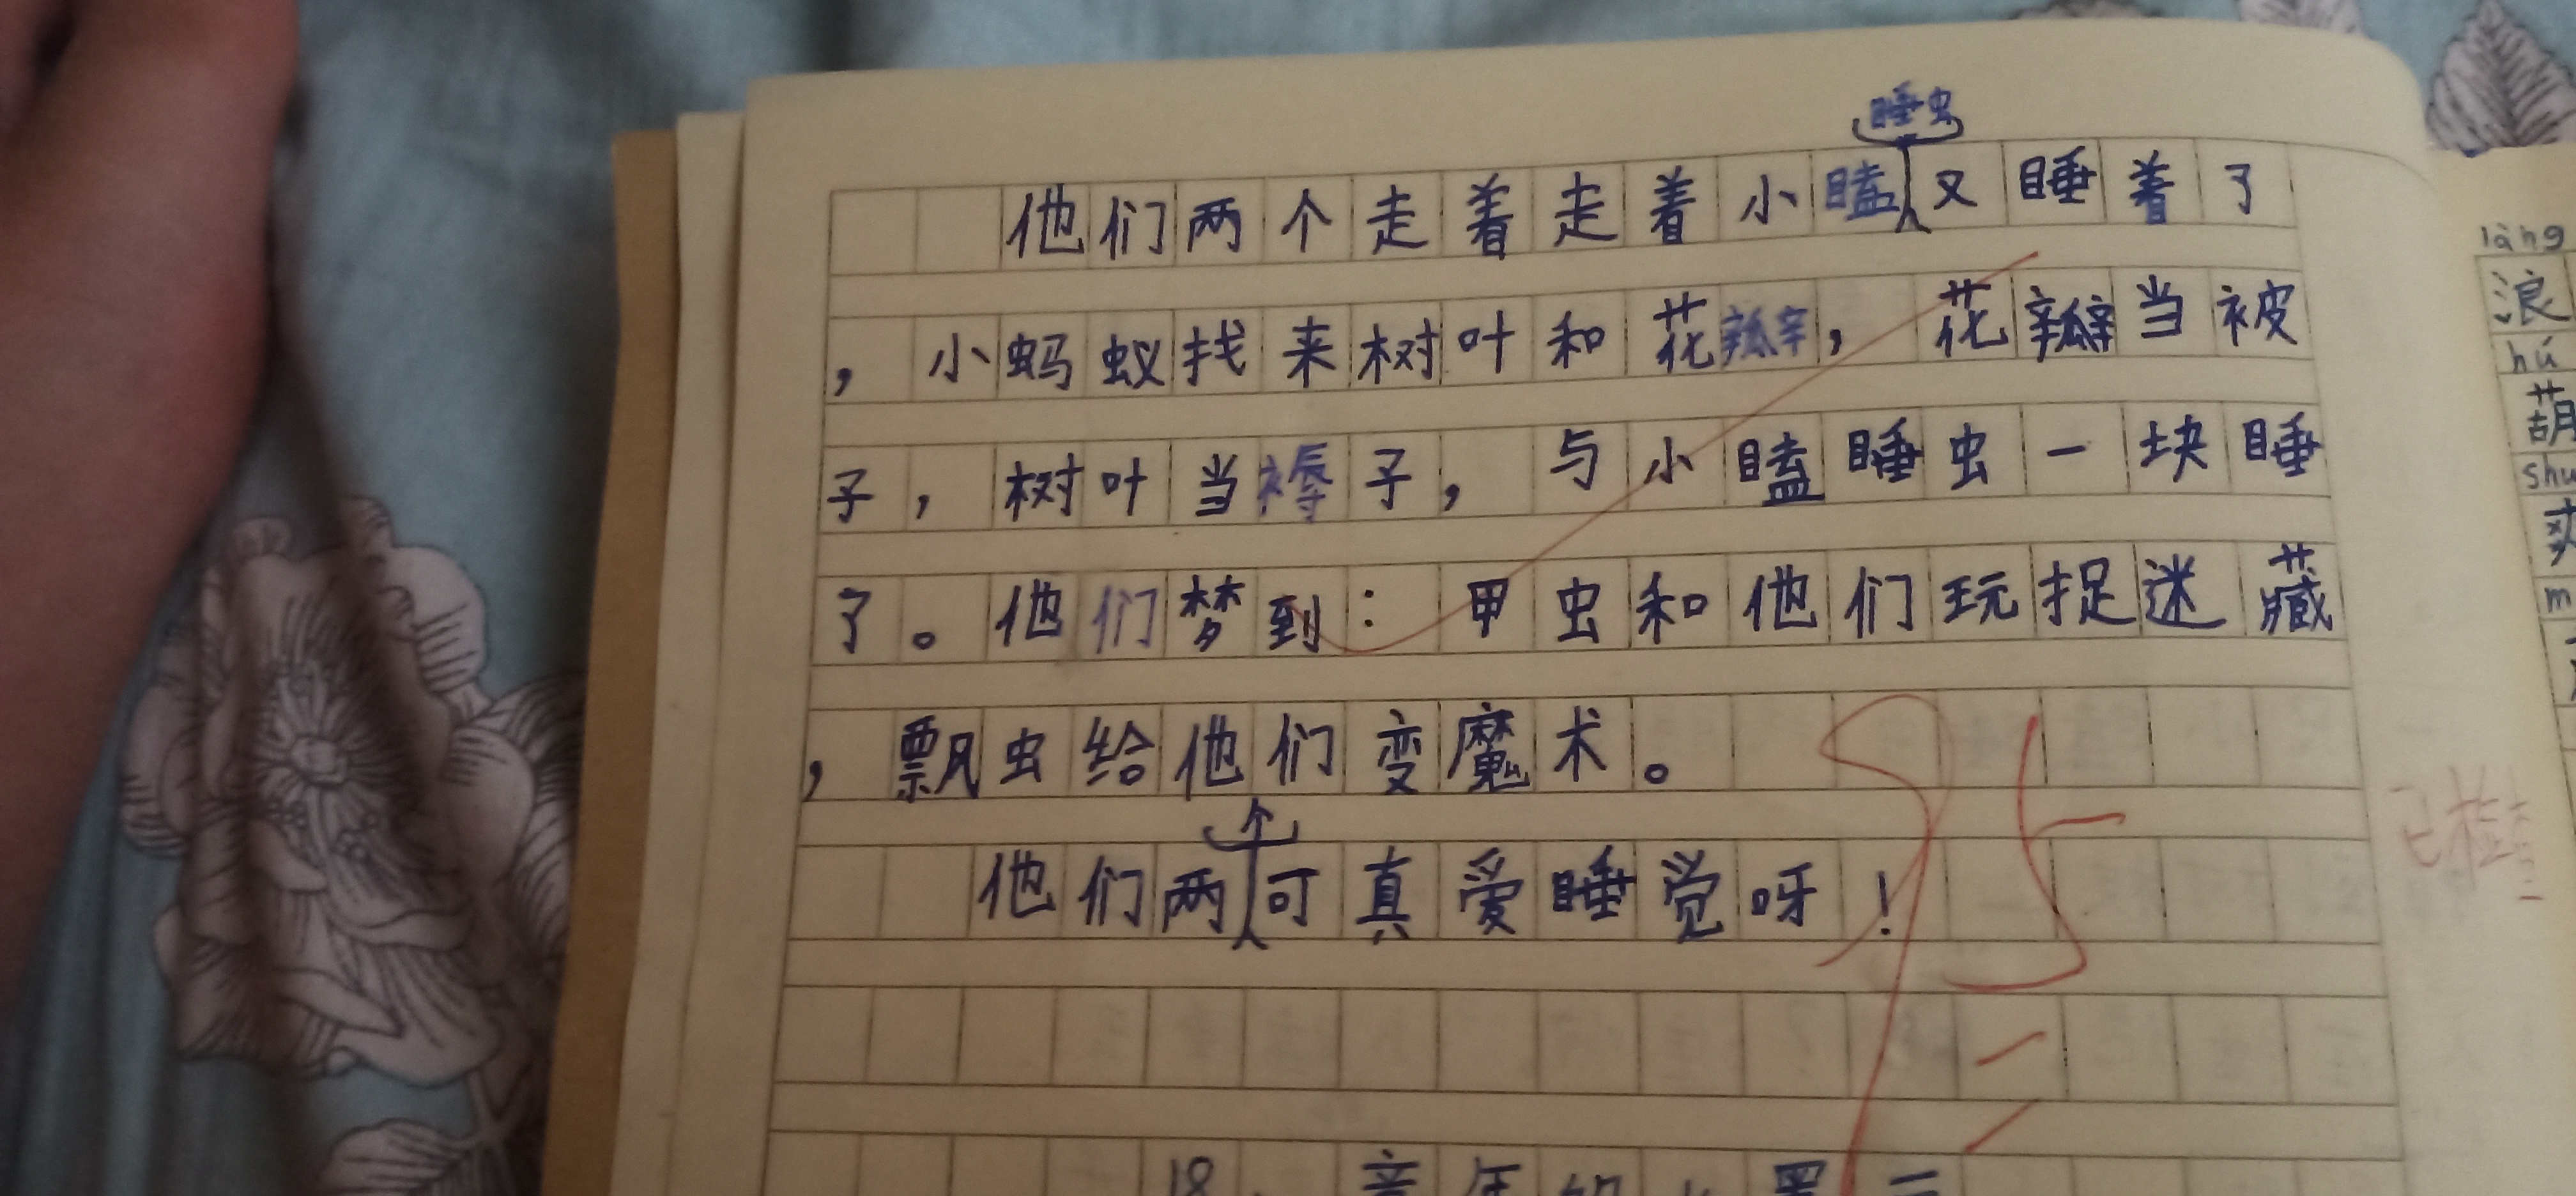 睡虫
他们两个走着走着小瞌又睡着了
，小蚂蚁找来树叶和花瓣，花瓣当被
子，树叶当褥子，与小瞌睡虫一块睡
了。他们梦到：甲虫和他们玩捉迷藏
，飘虫给他们变魔术。
个
他们两可真爱睡觉呀！
95
已检查
18、
làng
浪
hú
葫